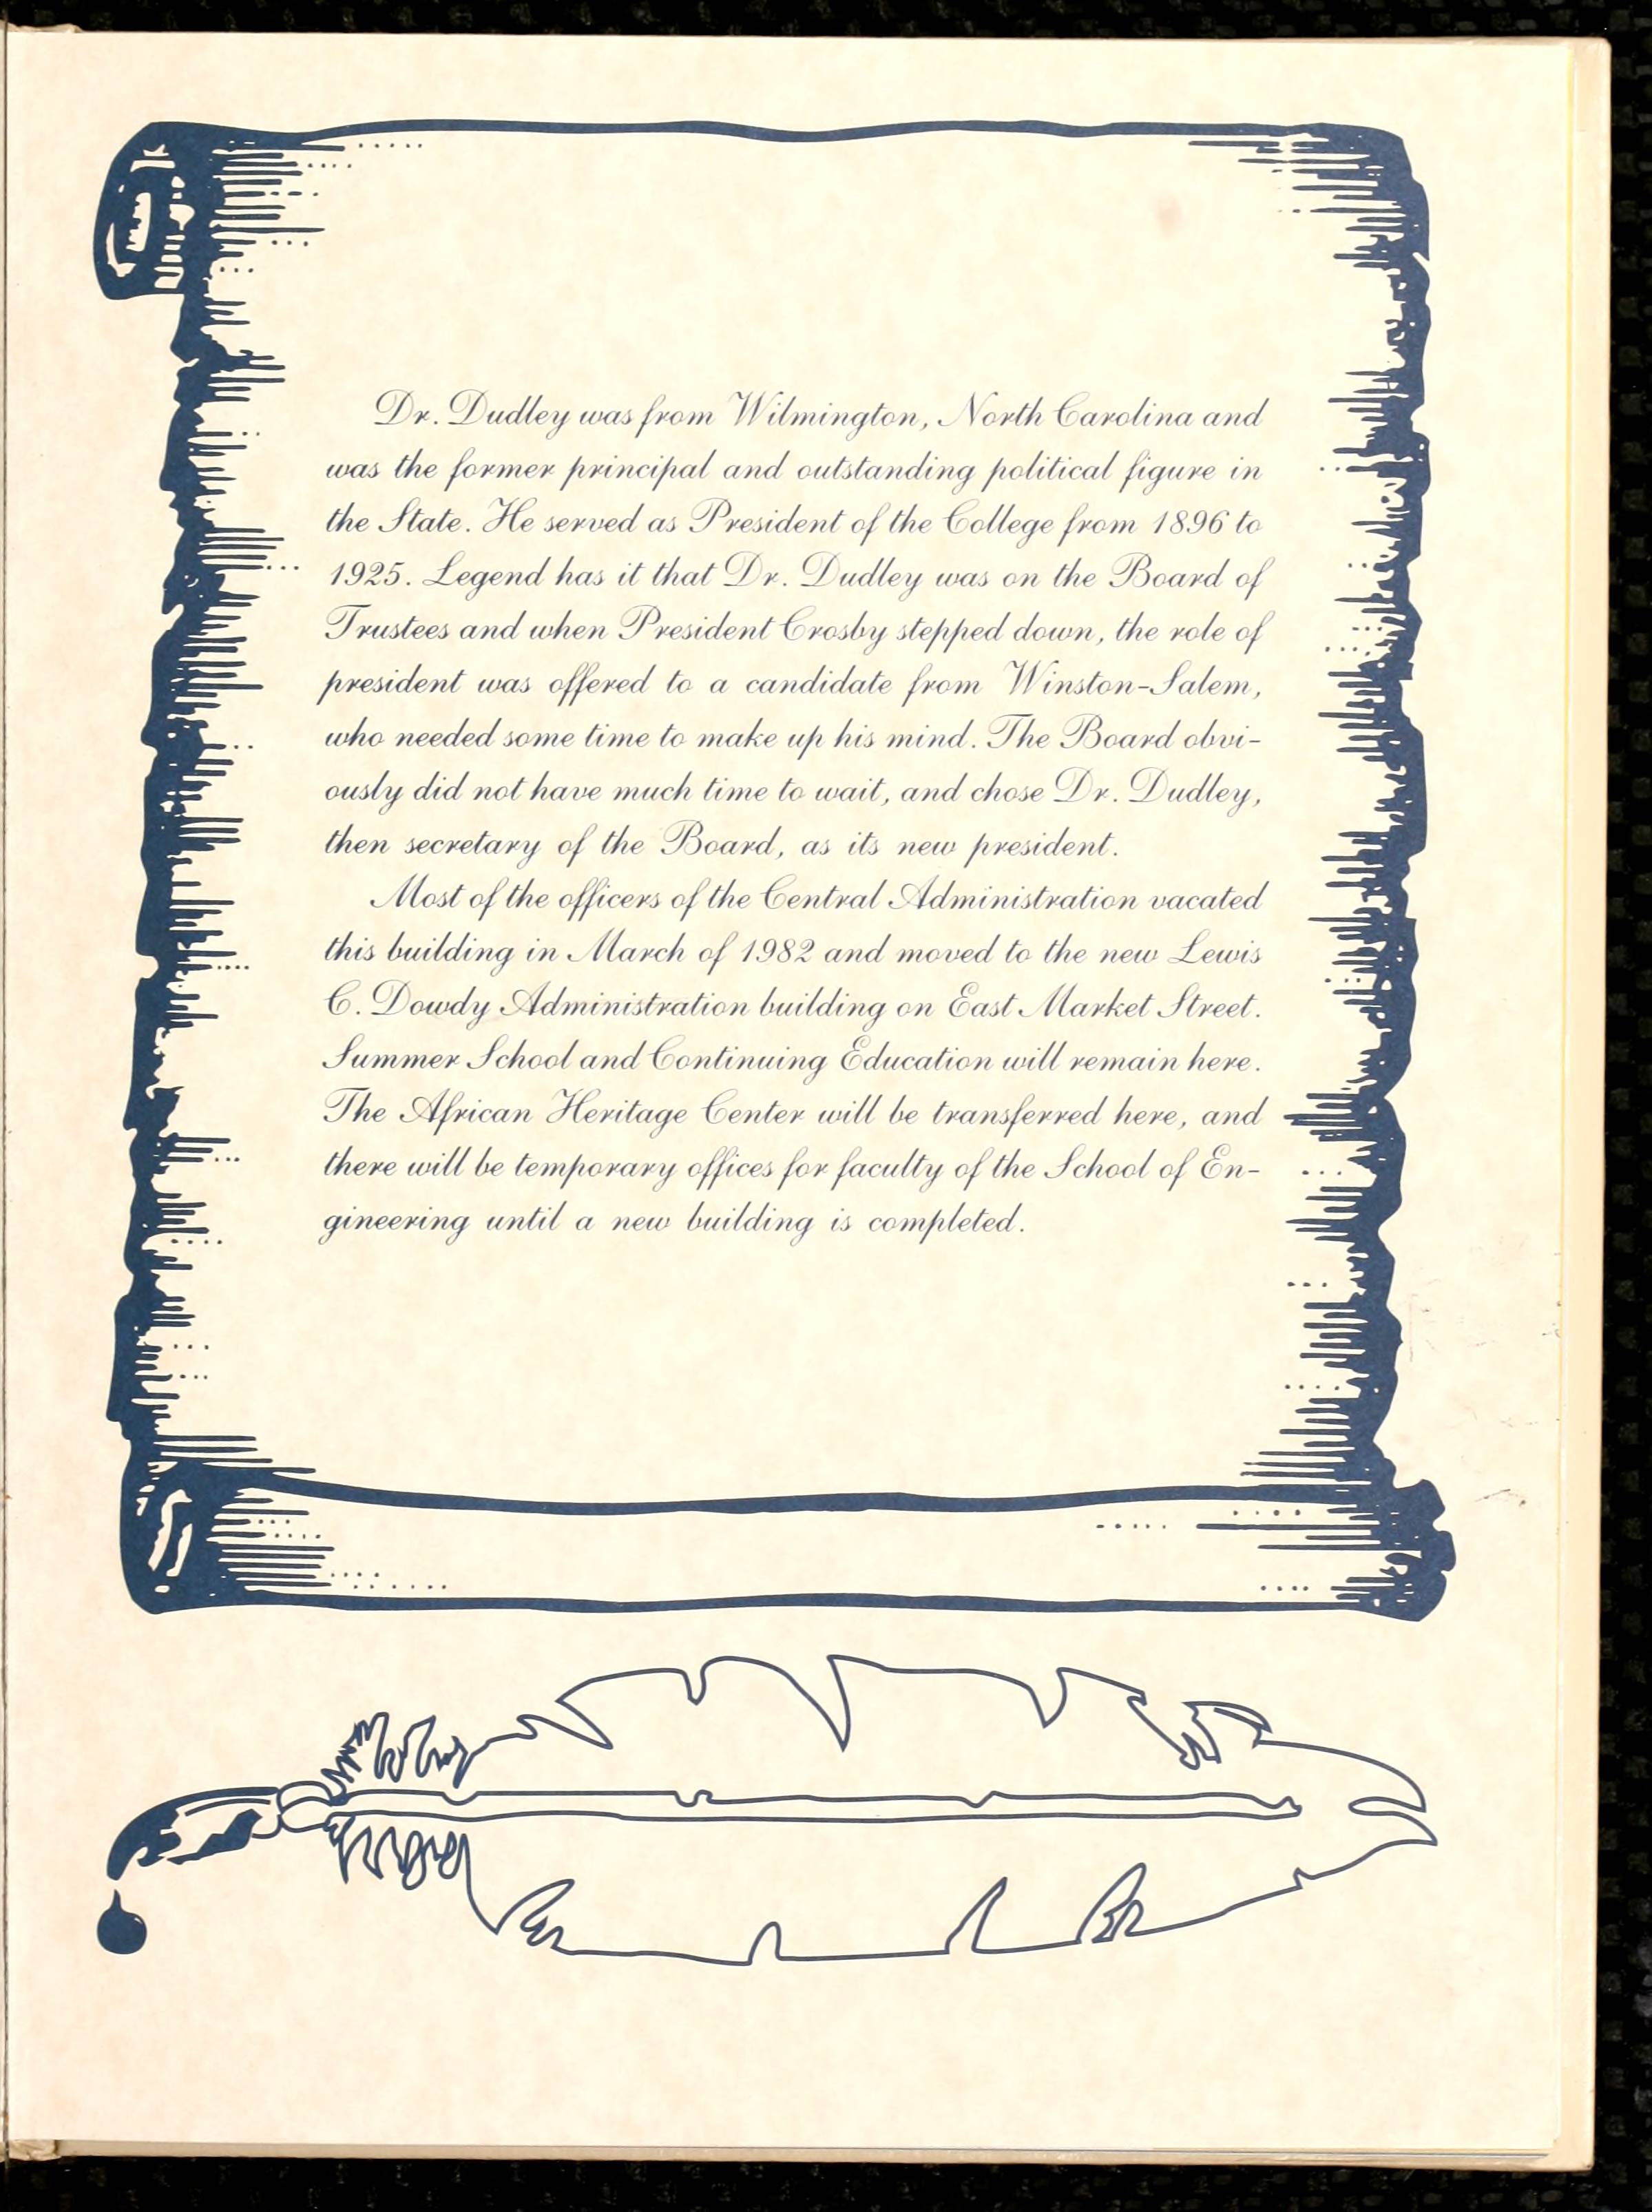 Dr. Dudley was from Wilmington, North Carolina and
was the former principal and outstanding political figure in
the State. He served as President of the College from 1896 to
1925. Legend has it that Dr. Dudley was on the Board of
Trustees and when President Crosby stepped down, the role of
president was offered to a candidate from Winston-Salem,
who needed some time to make up his mind. The Board obvi-
ously did not have much time to wait, and chose Dr. Dudley,
then secretary of the Board, as its new president.
Most of the officers of the Central Administration vacated
this building in March of 1982 and moved to the new Lewis
C. Dowdy Administration building on East Market Street.
Summer School and Continuing Education will remain here.
The African Heritage Center will be transferred here, and
there will be temporary offices for faculty of the School of En-
gineering until a new building is completed.